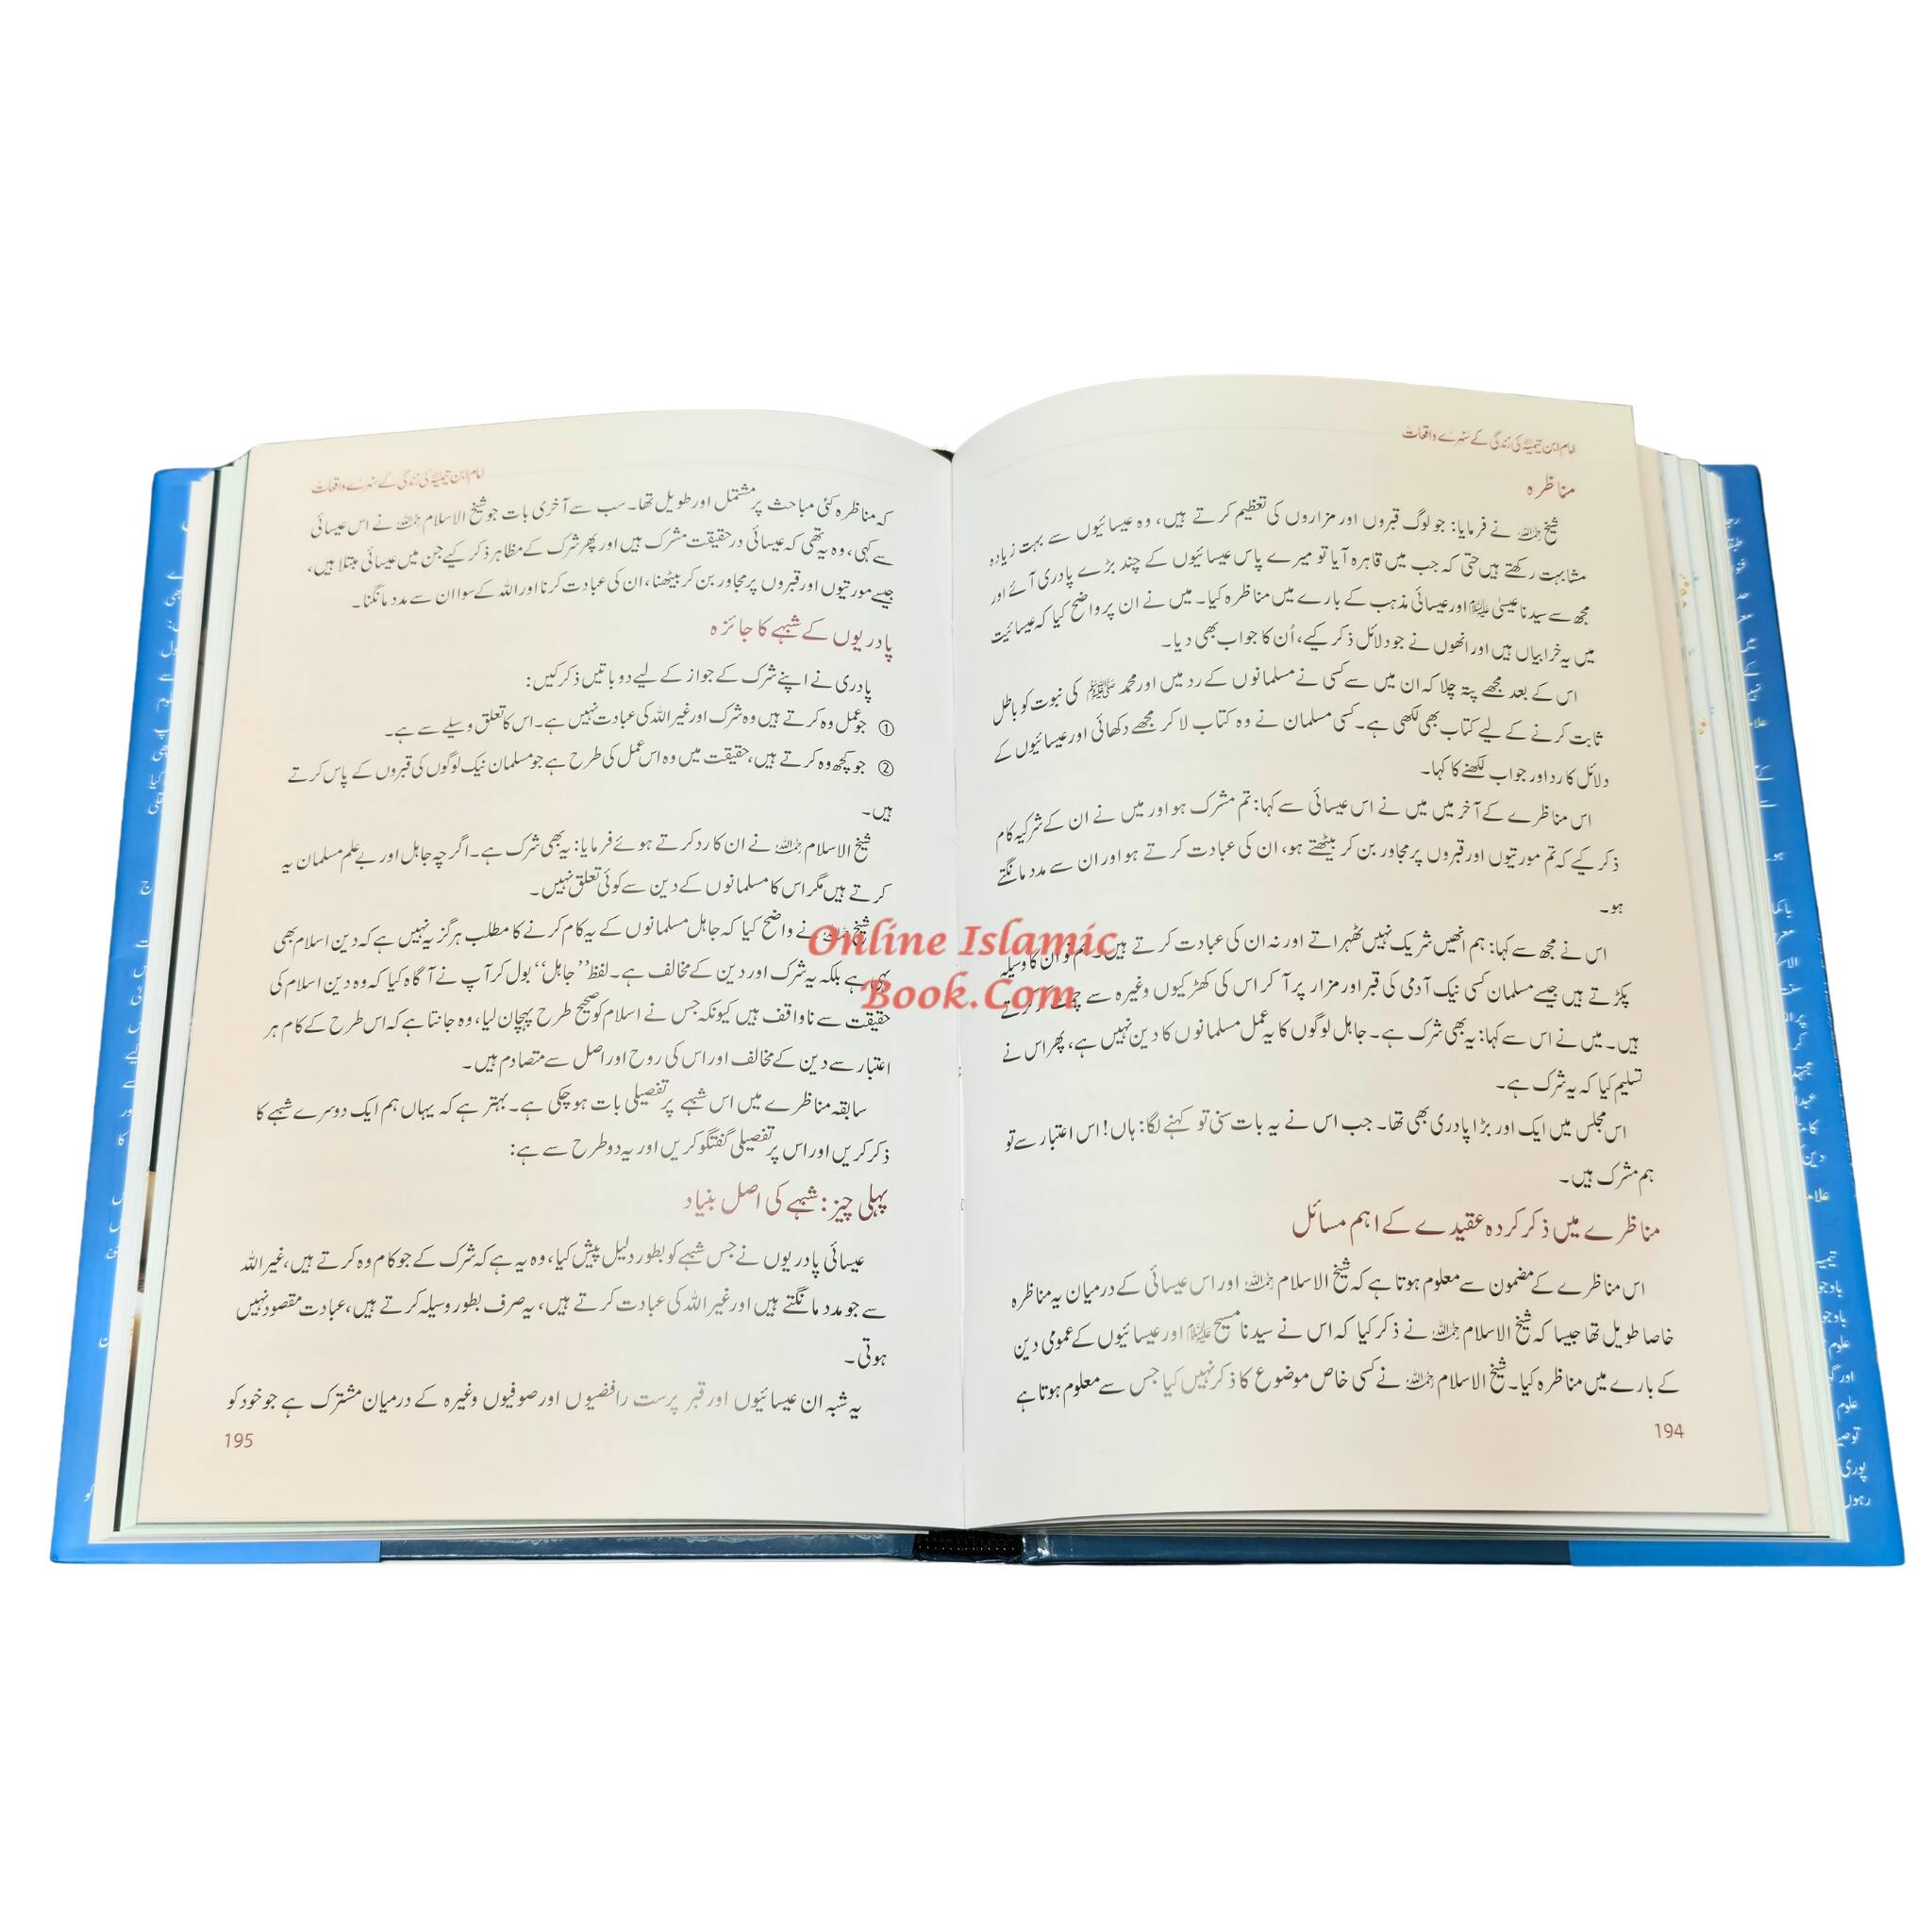 امام ابن تیمیہ کی زندگی کے سنہرے واقعات
مناظرہ
شیخ رحمہ اللہ نے فرمایا: جو لوگ قبروں اور مزاروں کی تعظیم کرتے ہیں، وہ عیسائیوں سے بہت زیادہ
مشابہت رکھتے ہیں حتی کہ جب میں قاہرہ آیا تو میرے پاس عیسائیوں کے چند بڑے پادری آئے اور
مجھ سے سیدنا عیسیٰ علیہ السلام اور عیسائی مذہب کے بارے میں مناظرہ کیا۔ میں نے ان پر واضح کیا کہ عیسائیت
میں یہ خرابیاں ہیں اور انھوں نے جو دلائل ذکر کیے، اُن کا جواب بھی دیا۔
اس کے بعد مجھے پتہ چلا کہ ان میں سے کسی نے مسلمانوں کے رد میں اور محمد ﷺ کی نبوت کو باطل
ثابت کرنے کے لیے کتاب بھی لکھی ہے۔ کسی مسلمان نے وہ کتاب لا کر مجھے دکھائی اور عیسائیوں کے
دلائل کا رد اور جواب لکھنے کا کہا۔
اس مناظرے کے آخر میں میں نے اس عیسائی سے کہا: تم مشرک ہو اور میں نے ان کے شرکیہ کام
ذکر کیے کہ تم مورتیوں اور قبروں پر مجاور بن کر بیٹھتے ہو، ان کی عبادت کرتے ہو اور ان سے مدد مانگتے
ہو۔
اس نے مجھ سے کہا: ہم انھیں شریک نہیں ٹھہراتے اور نہ ان کی عبادت کرتے ہیں۔ ہم تو ان کا وسیلہ
پکڑتے ہیں جیسے مسلمان کسی نیک آدمی کی قبر اور مزار پر آ کر اس کی کھڑکیوں وغیرہ سے
ہیں۔ میں نے اس سے کہا: یہ بھی شرک ہے۔ جاہل لوگوں کا یہ عمل مسلمانوں کا دین نہیں ہے، پھر اس نے
تسلیم کیا کہ یہ شرک ہے۔
اس مجلس میں ایک اور بڑا پادری بھی تھا۔ جب اس نے یہ بات سنی تو کہنے لگا: ہاں! اس اعتبار سے تو
ہم مشرک ہیں۔
مناظرے میں ذکر کردہ عقیدے کے اہم مسائل
اس مناظرے کے مضمون سے معلوم ہوتا ہے کہ شیخ الاسلام رحمہ اللہ اور اس عیسائی کے درمیان یہ مناظرہ
خاصا طویل تھا جیسا کہ شیخ الاسلام رحمہ اللہ نے ذکر کیا کہ اس نے سیدنا مسیح علیہ السلام اور عیسائیوں کے عمومی دین
کے بارے میں مناظرہ کیا۔ شیخ الاسلام رحمہ اللہ نے کسی خاص موضوع کا ذکر نہیں کیا جس سے معلوم ہوتا ہے
194
امام ابن تیمیہ کی زندگی کے سنہرے واقعات
کہ مناظرہ کئی مباحث پر مشتمل اور طویل تھا۔ سب سے آخری بات جو شیخ الاسلام رحمہ اللہ نے اس عیسائی
سے کہی، وہ یہ تھی کہ عیسائی درحقیقت مشرک ہیں اور پھر شرک کے مظاہر ذکر کیے جن میں عیسائی مبتلا ہیں،
جیسے مورتیوں اور قبروں پر مجاور بن کر بیٹھنا، ان کی عبادت کرنا اور اللہ کے سوا ان سے مدد مانگنا۔
پادریوں کے شبہے کا جائزہ
پادری نے اپنے شرک کے جواز کے لیے دو باتیں ذکر کیں:
① جو عمل وہ کرتے ہیں وہ شرک اور غیر اللہ کی عبادت نہیں ہے۔ اس کا تعلق وسیلے سے ہے۔
② جو کچھ وہ کرتے ہیں، حقیقت میں وہ اس عمل کی طرح ہے جو مسلمان نیک لوگوں کی قبروں کے پاس کرتے
ہیں۔
شیخ الاسلام رحمہ اللہ نے ان کا رد کرتے ہوئے فرمایا: یہ بھی شرک ہے۔ اگرچہ جاہل اور بے علم مسلمان یہ
کرتے ہیں مگر اس کا مسلمانوں کے دین سے کوئی تعلق نہیں۔
شیخ رحمہ اللہ نے واضح کیا کہ جاہل مسلمانوں کے یہ کام کرنے کا مطلب ہرگز یہ نہیں ہے کہ دین اسلام بھی
یہی ہے بلکہ یہ شرک اور دین کے مخالف ہے۔ لفظ ”جاہل“ بول کر آپ نے آگاہ کیا کہ وہ دین اسلام کی
حقیقت سے ناواقف ہیں کیونکہ جس نے اسلام کو صحیح طرح پہچان لیا، وہ جانتا ہے کہ اس طرح کے کام ہر
اعتبار سے دین کے مخالف اور اس کی روح اور اصل سے متصادم ہیں۔
سابقہ مناظرے میں اس شبہے پر تفصیلی بات ہو چکی ہے۔ بہتر ہے کہ یہاں ہم ایک دوسرے شبہے کا
ذکر کریں اور اس پر تفصیلی گفتگو کریں اور یہ دو طرح سے ہے:
پہلی چیز: شبہے کی اصل بنیاد
عیسائی پادریوں نے جس شبہے کو بطور دلیل پیش کیا، وہ یہ ہے کہ شرک کے جو کام وہ کرتے ہیں، غیر اللہ
سے جو مدد مانگتے ہیں اور غیر اللہ کی عبادت کرتے ہیں، یہ صرف بطور وسیلہ کرتے ہیں، عبادت مقصود نہیں
ہوتی۔
یہ شبہ ان عیسائیوں اور قبر پرست رافضیوں اور صوفیوں وغیرہ کے درمیان مشترک ہے جو خود کو
195
Online Islamic
Book.Com